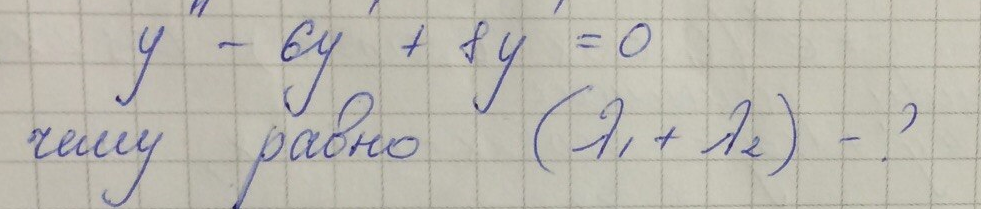 y'' - 6y' + 8y' = 0
чему равно (λ₁ + λ₂) - ?